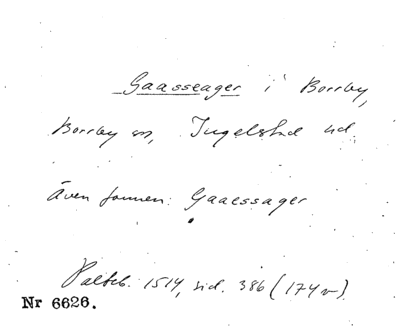 Gaasseager i Borrby,
Borrby sn, Ingelstad hd.
Även formen: Gaaessager
Palteb. 1514, sid. 386 (174 v).
Nr 6626.